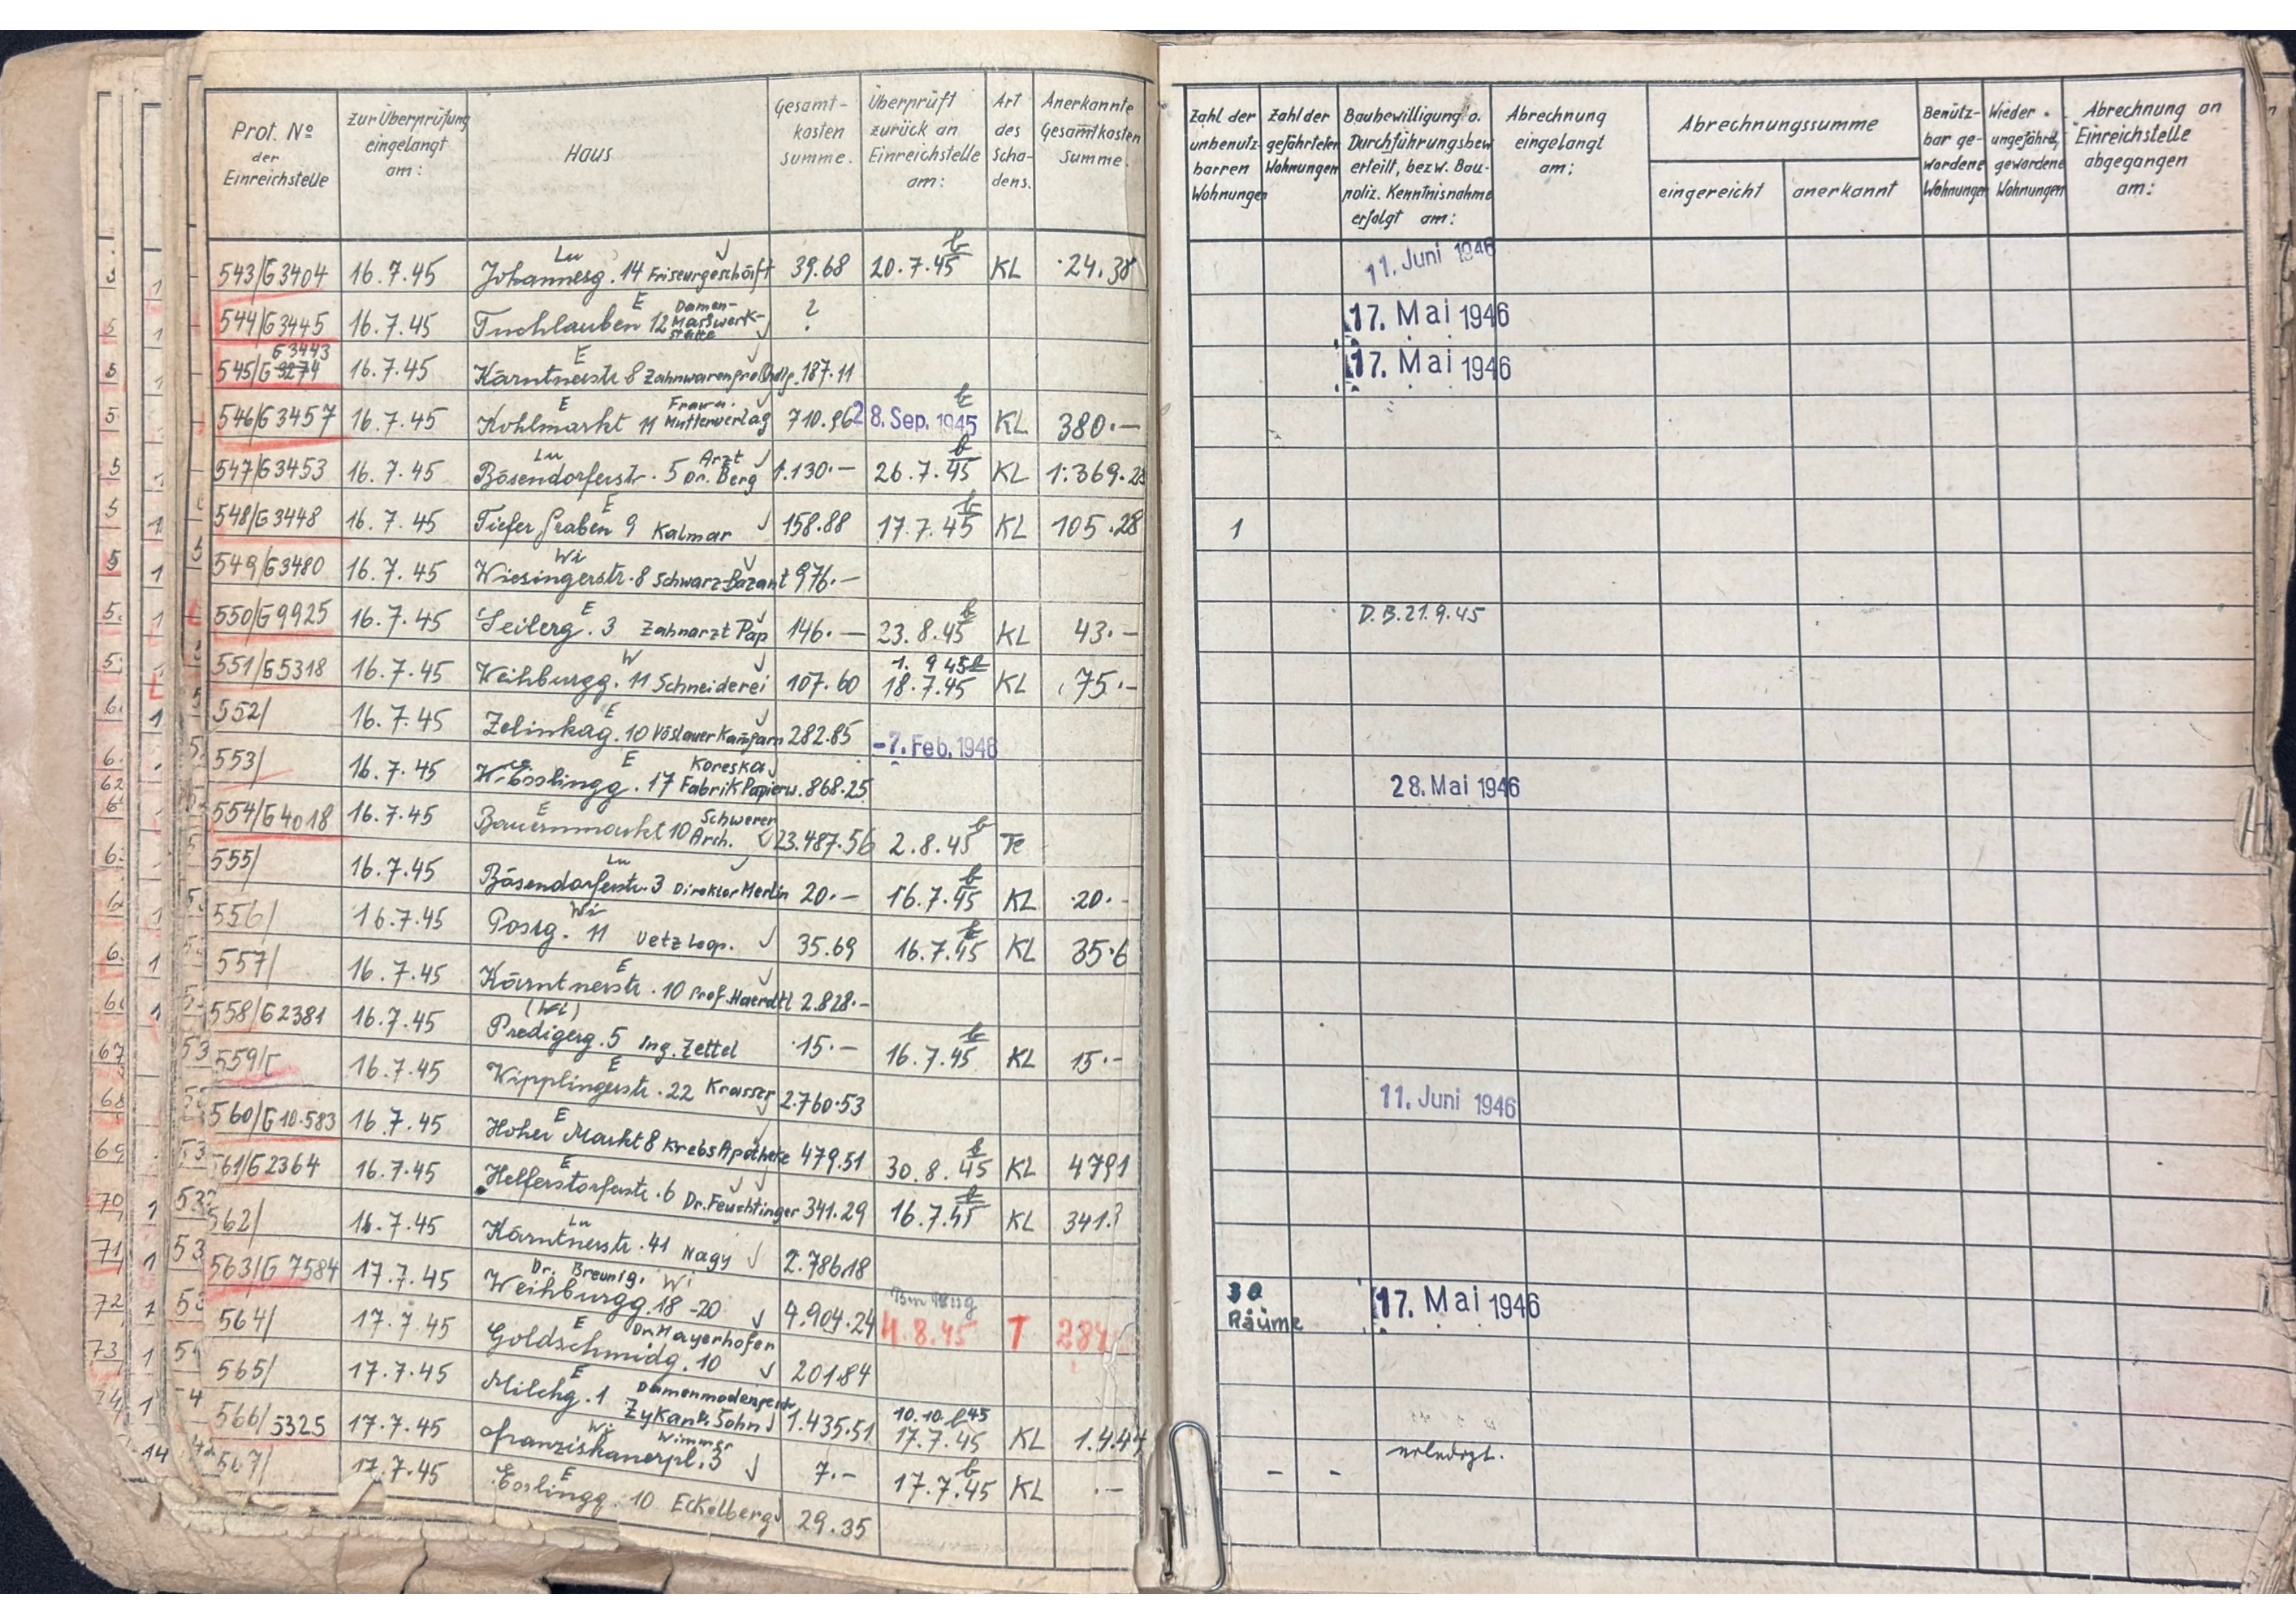 Prot. Nº der Einreichstelle | zur Überprüfung eingelangt am: | Haus | Gesamt-kosten summe. | Überprüft zurück an Einreichstelle am: | Art des Scha-dens. | Anerkannte Gesamtkosten Summe. | Zahl der unbenutz-barren Wohnungen | Zahl der gefährteten Wohnungen | Baubewilligung o. Durchführungsbew. erteilt, bezw. Bau-poliz. Kenntnisnahme erfolgt am: | Abrechnung eingelangt am: | Abrechnungssumme eingereicht | anerkannt | Benütz-bar ge-wordene Wohnungen | Wieder ungefährd. gewordene Wohnungen | Abrechnung an Einreichstelle abgegangen am:
543/G3404 16.7.45 Lu Johannesg. 14 Friseurgeschäft 39.68 20.7.45 KL 24.38 11. Juni 1946
544/G3445 16.7.45 E Tuchlauben 12 Damen-Masswerk-stätte ? 17. Mai 1946
545/G3274 G3443 16.7.45 E Kärntnerstr 8 Zahnwarengroßhdlg. 187.11 17. Mai 1946
546/G3457 16.7.45 E Kohlmarkt 11 Frau u. Mutterverlag 710.96 28. Sep. 1945 KL 380.—
547/G3453 16.7.45 Lu Bösendorferstr. 5 Arzt Dr. Berg 1.130.— 26.7.45 KL 1.369.28
548/G3448 16.7.45 E Tiefer Graben 9 Kalmar 158.88 17.7.45 KL 105.28 1
549/G3480 16.7.45 Wi Wiesingerstr. 8 Schwarz-Bazant 976.—
550/G9925 16.7.45 E Seilerg. 3 Zahnarzt Pap 146.— 23.8.45 KL 43.— D.B. 21.9.45
551/G5318 16.7.45 W Weihburgg. 11 Schneiderei 107.60 1. 9 45 18.7.45 KL 75.-
552/ 16.7.45 E Zelinkag. 10 Vöslauer Kamgarn 282.85 -7. Feb. 1946
553/ 16.7.45 E Wösslingg. 17 Koreska Fabrik Papierw. 868.25 28. Mai 1946
554/G4018 16.7.45 E Bauernmarkt 10 Schwerer Arch. 23.487.56 2.8.45 Te
555/ 16.7.45 Lu Bösendorferstr. 3 Direktor Merlin 20.— 16.7.45 KL 20.-
556/ 16.7.45 Wi Postg. 11 Uetz Leop. 35.69 16.7.45 KL 35.6
557/ 16.7.45 E Kärntnerstr. 10 Prof. Haerdtl 2.828.—
558/G2381 16.7.45 (Wi) Predigerg. 5 Ing. Zettel 15.— 16.7.45 KL 15.—
559/ 16.7.45 E Wipplingerstr. 22 Krasser 2.760.53 11. Juni 1946
560/G10.583 16.7.45 E Hoher Markt 8 Krebs Apotheke 479.51 30.8.45 KL 4791
561/G2364 16.7.45 E Helferstorferstr. 6 Dr. Feuchtinger 341.29 16.7.45 KL 341.
562/ 16.7.45 Lu Kärntnerstr. 41 Nagy 2.786.18
563/G7584 17.7.45 Dr. Breunig. Wi Weihburgg. 18-20 9.904.24 4.8.45 T 284 30 Räume 17. Mai 1946
564/ 17.7.45 E Goldschmidg. 10 Dr. Mayerhofer 201.84
565/ 17.7.45 E Milchg. 1 Damenmodengesch. Zykan & Sohn 1.435.51 10.10.45 17.7.45 KL 1.4.44
566/5325 17.7.45 Wi Franziskanerpl. 3 Wimmer 7.- 17.7.45 KL .— - - erledigt.
567/ 17.7.45 E Esslingg. 10 Eckelberg 29.35